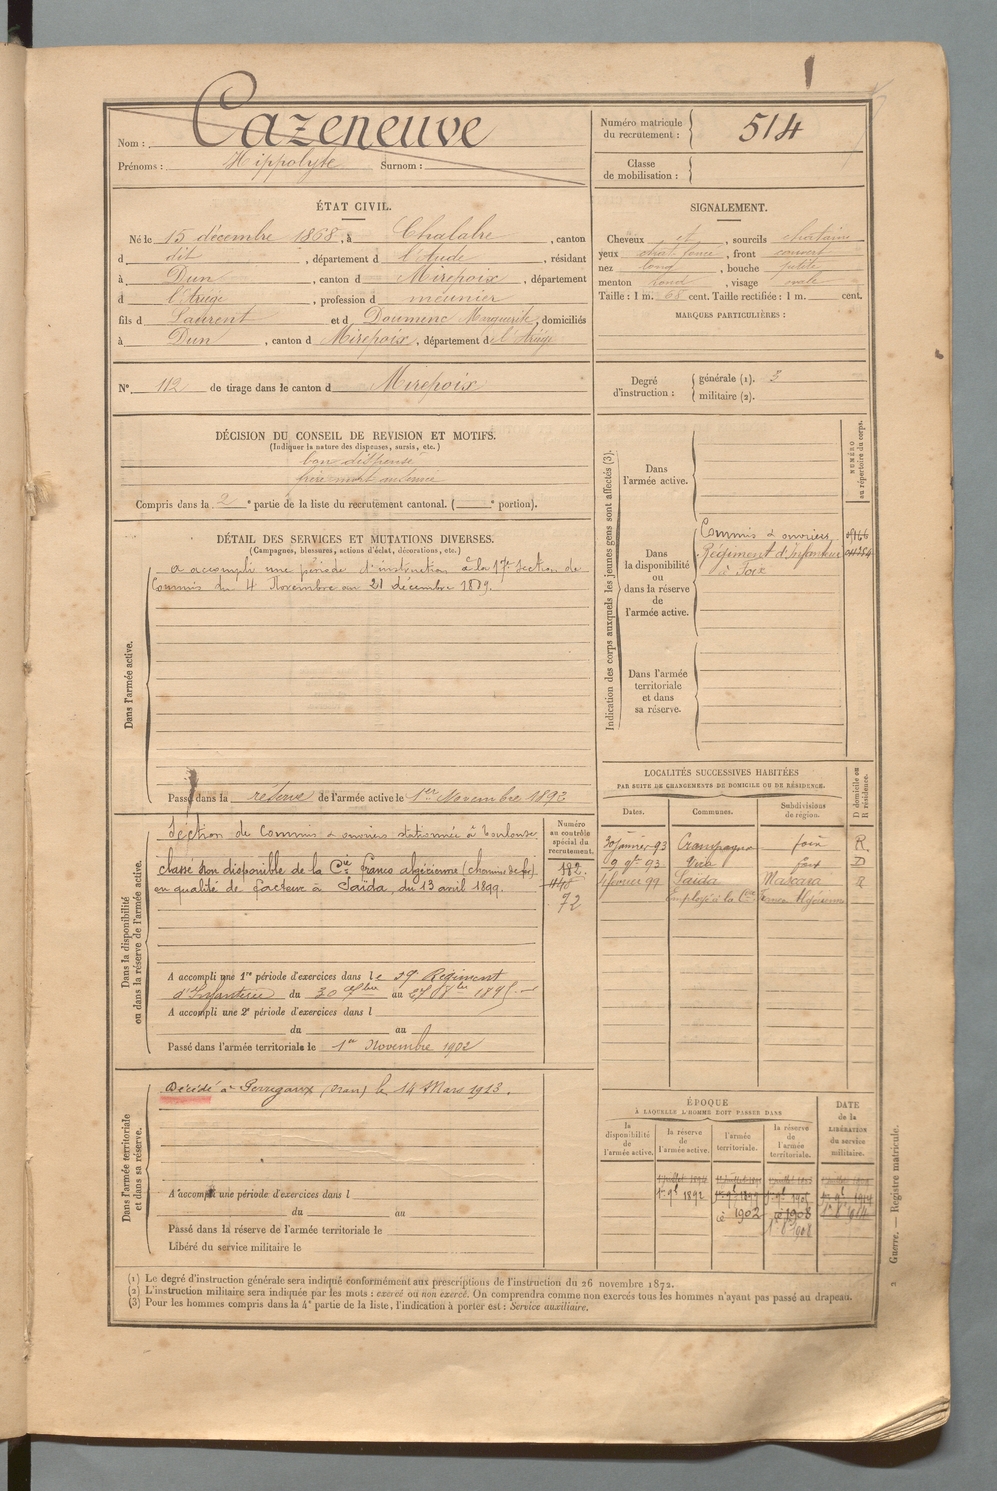 Nom : Cazeneuve
Prénoms : Hippolyte Surnom :
Numéro matricule du recrutement : 514
Classe de mobilisation :
ÉTAT CIVIL.
Né le 15 décembre 1868, à Chalabre, canton
d dit, département d l'Aude, résidant
à Dun, canton d Mirepoix, département
d l'Ariège, profession d meunier
fils d Laurent et d Doumenc Marguerite, domiciliés
à Dun, canton d Mirepoix, département d l'Ariège
N° 112 de tirage dans le canton d Mirepoix
SIGNALEMENT.
Cheveux et, sourcils chatains
yeux chat. foncé, front couvert
nez long, bouche petite
menton rond, visage ovale
Taille : 1 m. 68 cent. Taille rectifiée : 1 m. cent.
MARQUES PARTICULIÈRES :
Degré d'instruction :
générale (1). 3
militaire (2).
DÉCISION DU CONSEIL DE REVISION ET MOTIFS.
(Indiquer la nature des dispenses, sursis, etc.)
bon dispensé
frère mort
Compris dans la 2e partie de la liste du recrutement cantonal. ( e portion).
DÉTAIL DES SERVICES ET MUTATIONS DIVERSES.
(Campagnes, blessures, actions d'éclat, décorations, etc.)
Dans l'armée active.
a accompli une période d'instruction à la 17e Section de
Commis du 4 Novembre au 21 décembre 1889.
Passé dans la réserve de l'armée active le 1er Novembre 1892
Indication des corps auxquels les jeunes gens sont affectés (3).
NUMÉRO au répertoire du corps.
Dans l'armée active.
Dans la disponibilité ou dans la réserve de l'armée active.
Commis & ouvriers
Régiment d'Infanterie
à Foix
Dans l'armée territoriale et dans sa réserve.
Dans la disponibilité ou dans la réserve de l'armée active.
Numéro au contrôle spécial du recrutement.
Section de Commis & ouvriers stationnée à Toulouse
classé non disponible de la Cie franco algérienne (chemins de fer)
en qualité de facteur à Saïda, du 13 avril 1899.
182
72
A accompli une 1re période d'exercices dans le 59e Régiment
d'Infanterie du 30 7bre au 27 8bre 1895
A accompli une 2e période d'exercices dans l
du au
Passé dans l'armée territoriale le 1er Novembre 1902
LOCALITÉS SUCCESSIVES HABITÉES
PAR SUITE DE CHANGEMENTS DE DOMICILE OU DE RÉSIDENCE.
D domicile ou R résidence.
Dates. Communes. Subdivisions de région.
30 janvier 93 Crampagna foix R.
19 9bre 93 Vira foix D
février 99 Saïda Mascara R
Employé à la Cie Franco Algérienne
Dans l'armée territoriale et dans sa réserve.
Décédé à Perrégaux (Oran) le 14 Mars 1913.
A accompli une période d'exercices dans l
du au
Passé dans la réserve de l'armée territoriale le
Libéré du service militaire le
ÉPOQUE
À LAQUELLE L'HOMME DOIT PASSER DANS
DATE de la LIBÉRATION du service militaire.
la disponibilité de l'armée active.
la réserve de l'armée active.
l'armée territoriale.
la réserve de l'armée territoriale.
1er 9bre 1892
1902
1908
(1) Le degré d'instruction générale sera indiqué conformément aux prescriptions de l'instruction du 26 novembre 1872.
(2) L'instruction militaire sera indiquée par les mots : exercé ou non exercé. On comprendra comme non exercés tous les hommes n'ayant pas passé au drapeau.
(3) Pour les hommes compris dans la 4e partie de la liste, l'indication à porter est : Service auxiliaire.
Guerre. — Registre matricule.